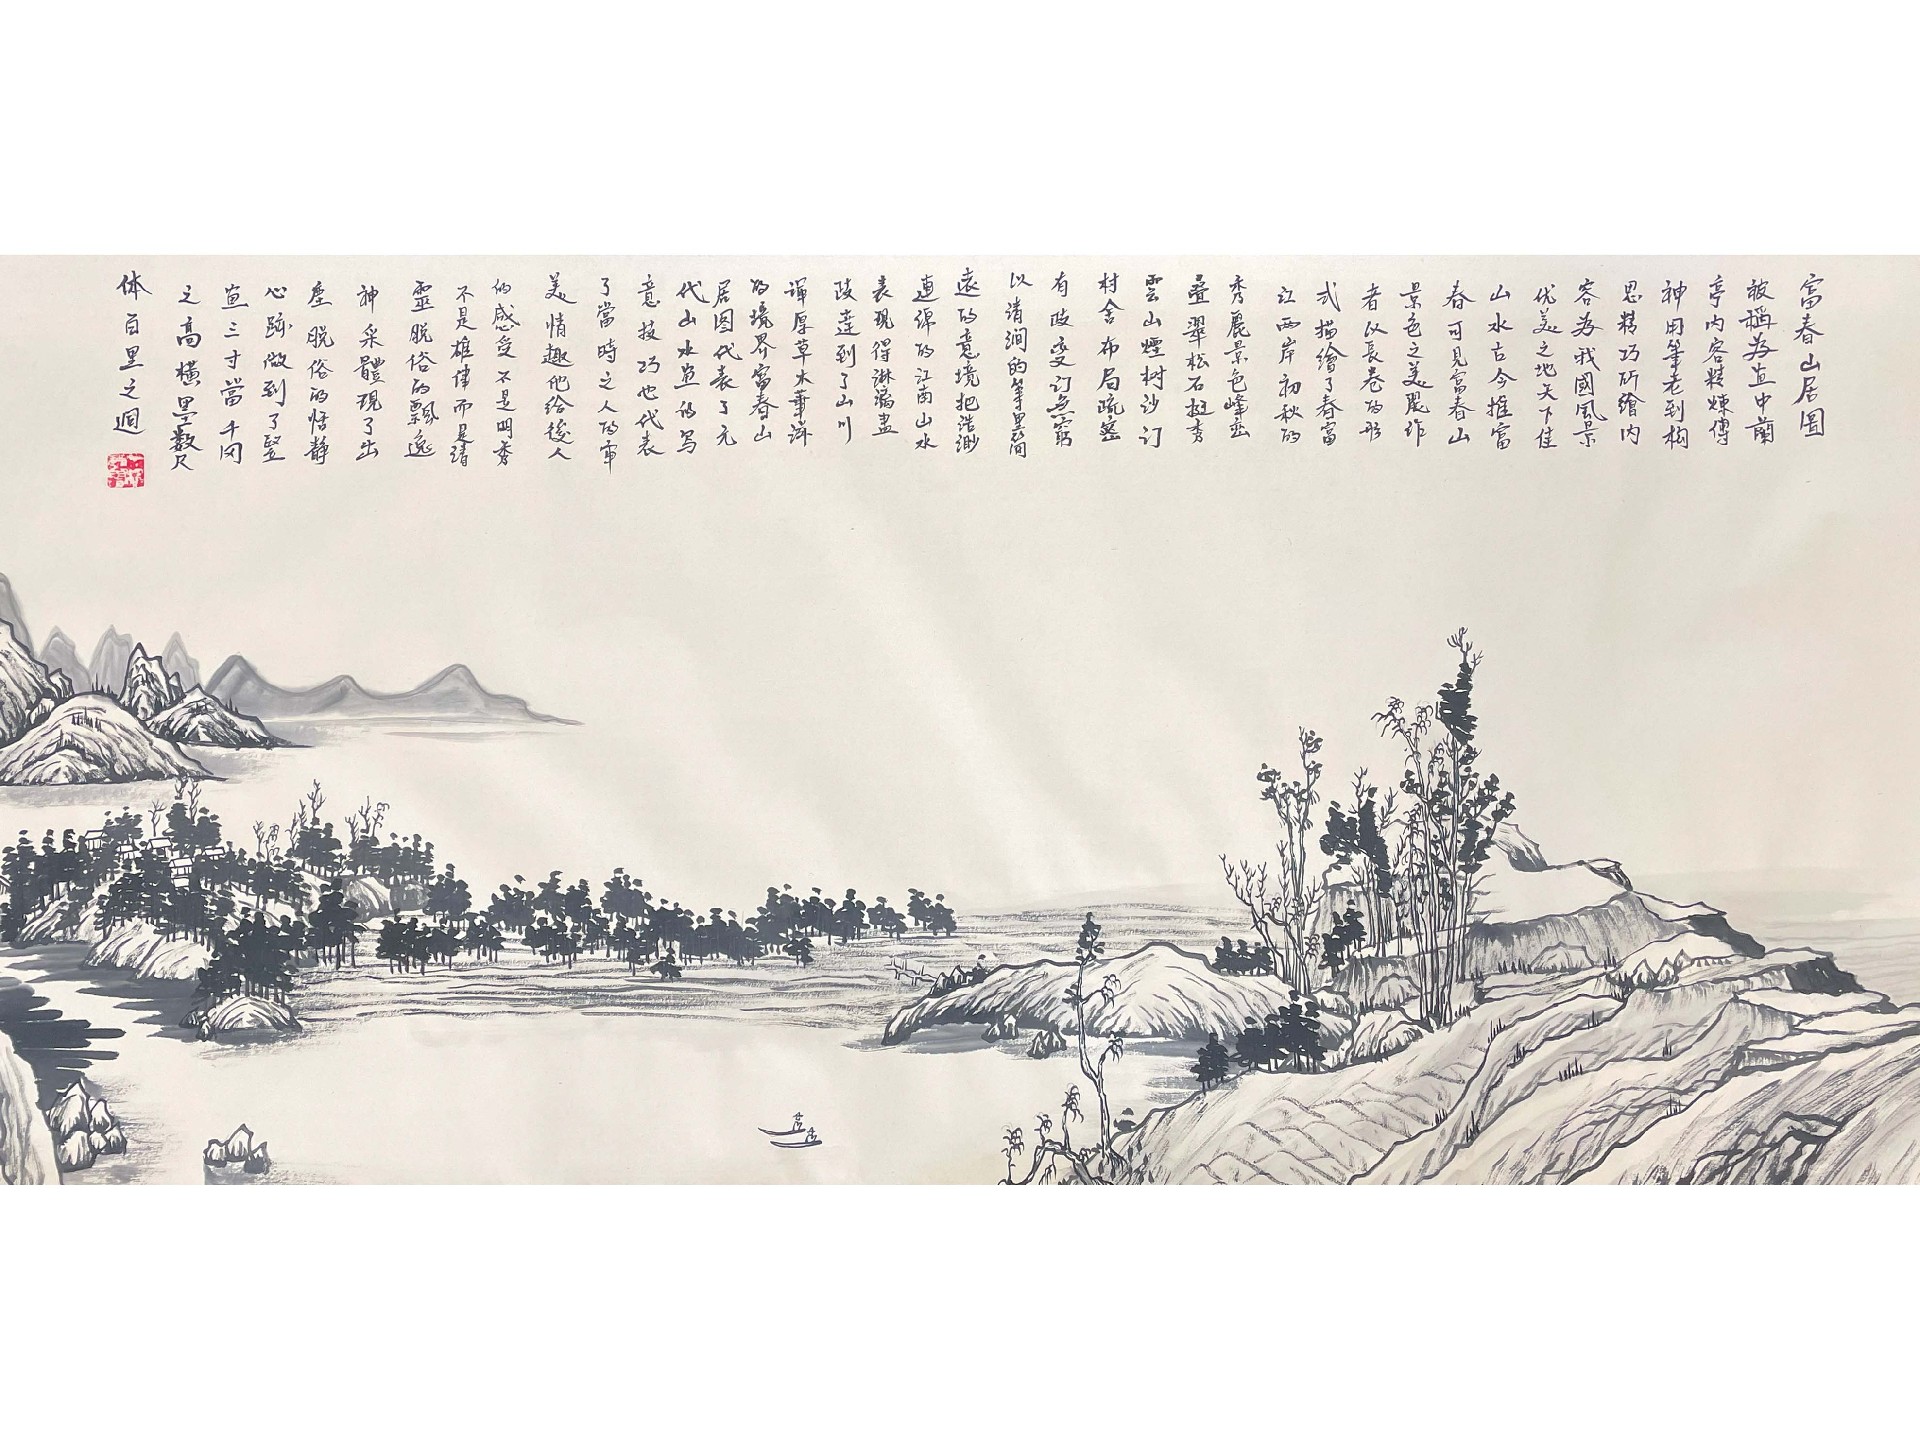 富春山居图
被稱為画中蘭
亭内容精煉傳
神用筆老到构
思精巧所繪内
容为我國風景
优美之地天下佳
山水古今推富
春可見富春山
景色之美麗作
者以長卷的形
式描繪了春富
江两岸初秋的
秀麗景色峰峦
叠翠松石挺秀
雲山煙树沙汀
村舍布局疏密
有致变订無窮
以清润的筆墨简
遠的意境把浩渺
連绵的江南山水
表現得淋漓盡
致達到了山川
渾厚草木華滋
的境界富春山
居图代表了元
代山水画的写
意技巧也代表
了當時之人的审
美情趣他给後人
的感受不是明秀
不是雄伟而是清
靈脱俗的飄逸
神采體現了出
塵脱俗的恬静
心跡做到了竪
画三寸當千冈
之高橫墨数尺
体百里之迴